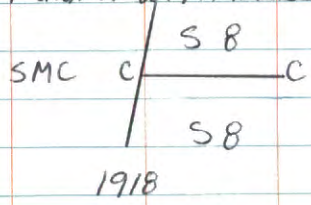 S 8
SMC C C
S 8
1918